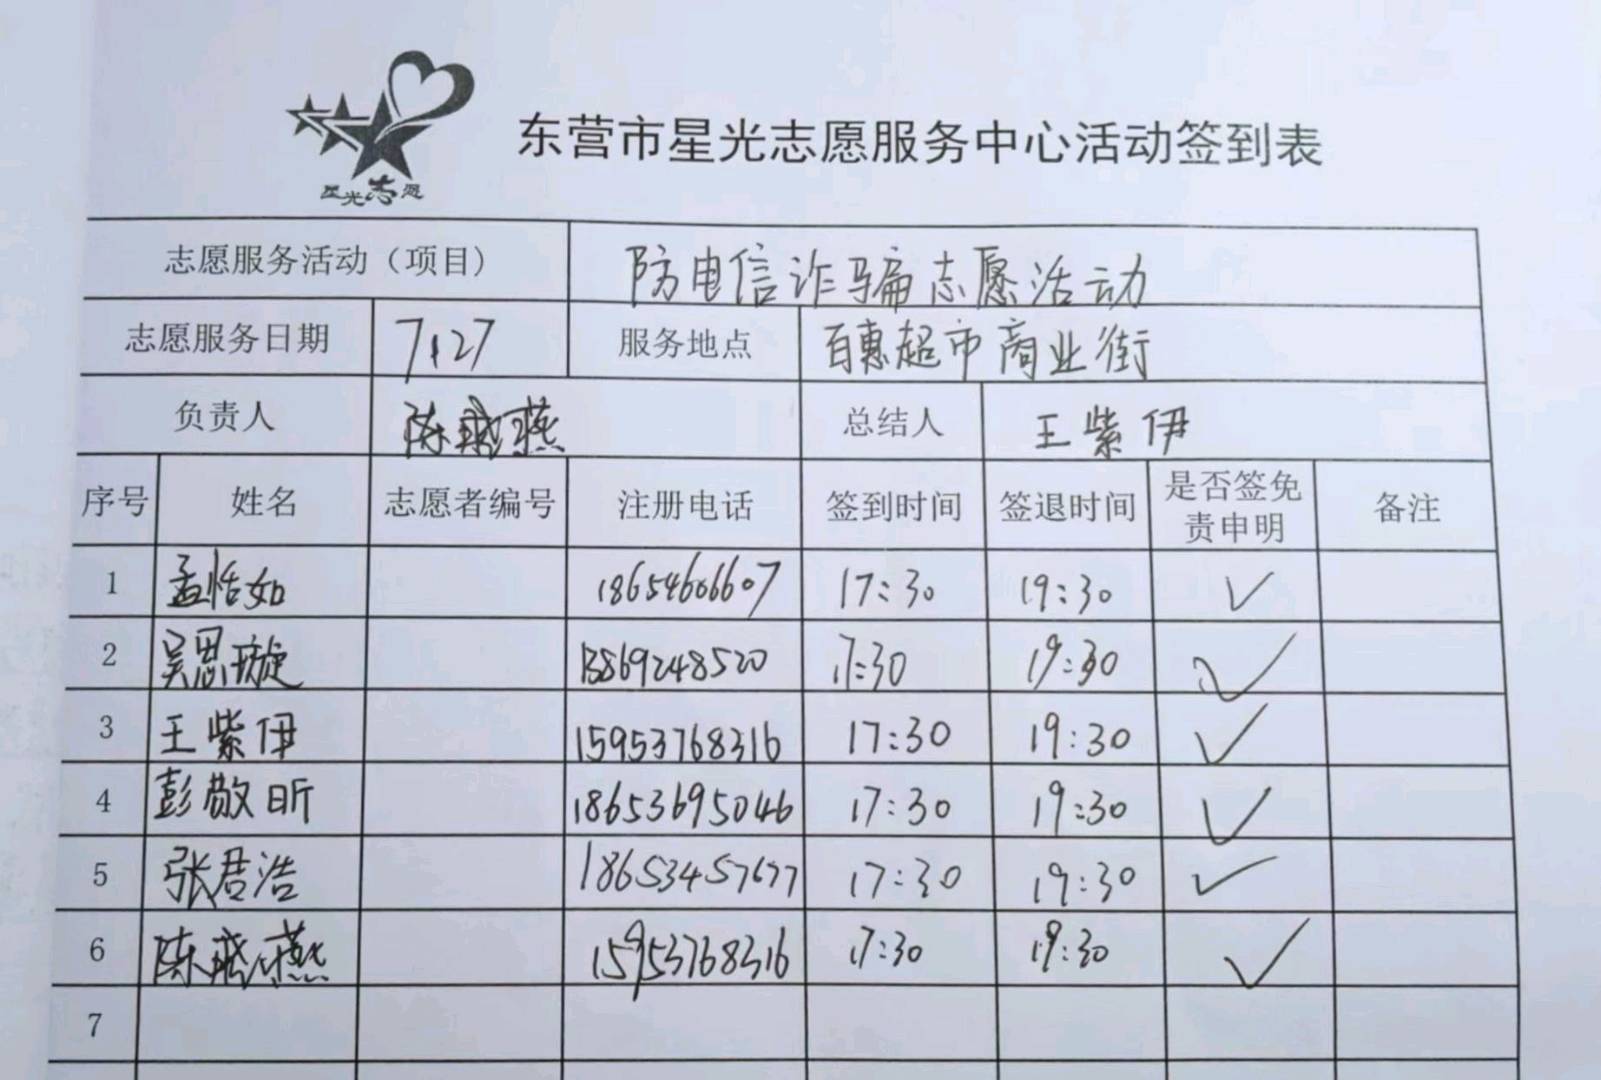 星光志愿
东营市星光志愿服务中心活动签到表
志愿服务活动（项目） 防电信诈骗志愿活动
志愿服务日期 7.27 服务地点 百惠超市商业街
负责人 陈 燕 总结人 王紫伊
序号 姓名 志愿者编号 注册电话 签到时间 签退时间 是否签免责申明 备注
1 孟恬如 18654606607 17:30 19:30 ✓
2 吴思璇 13869248520 17:30 19:30 ✓
3 王紫伊 15953768316 17:30 19:30 ✓
4 彭敬昕 18653695046 17:30 19:30 ✓
5 张君浩 18653457677 17:30 19:30 ✓
6 陈 燕 15953768316 17:30 19:30 ✓
7